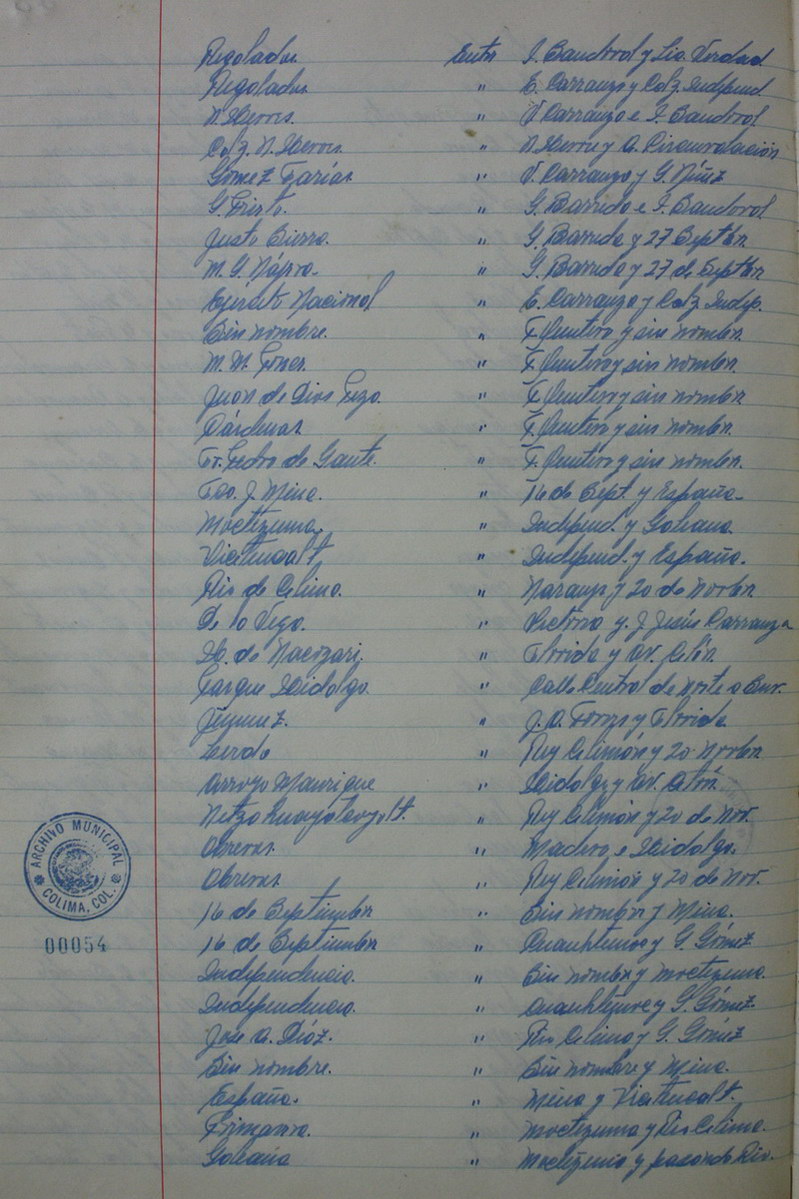 Regalado. Entre I. Sandoval y Lic. Verdad.
Regalado. " E. Carranza y Calz. Independ.
N. Heroes. " V. Carranza e I. Sandoval
Calz. N. Heroes. " N. Heroe y A. Circunvalación
Gómez Farías. " V. Carranza y G. Núñez
G. Prieto. " G. Barreda e I. Sandoval
Justo Sierra. " G. Barreda y 27 Septbre
M. G. Nájera. " G. Barreda y 27 de Septbre
Ejército Nacional " E. Carranza y Calz. Indep.
Sin nombre. " F. Quintero y sin nombre.
M. M. Ponce. " F. Quintero y sin nombre.
Juan de Dios Peza. " F. Quintero y sin nombre
Cárdenas. " F. Quintero y sin nombre.
Fr. Pedro de Gante. " F. Quintero y sin nombre.
Fco. J. Mina. " 16 de Sept. y España.
Moctezuma. " Independ. y Galeana.
Xicotencatl. " Independ. y España.
Rio de Colima. " Naranjo y 20 de Novbre
De la Vega. " Victoria y J. Jesús Carranza
H. de Nacozari. " Florida y Av. Colón.
Parque Hidalgo. " Calle Central de Norte a Sur.
Jiménez. " J. A. Torres y Florida
Lerdo " Rey Colimán y 20 Novbre
Arroyo Manrique " Hidalgo y Av. Colón.
Netzahualcoyotl. " Rey Colimán y 20 de Nov.
Obreros. " Madero e Hidalgo.
Obreros. " Rey Colimán y 20 de Nov.
16 de Septiembre " Sin nombre y Mina.
16 de Septiembre " Cuauhtemoc y G. Gómez
Independencia. " Sin nombre y Moctezuma.
Independencia. " Cuauhtémoc y G. Gómez
Jose A. Díaz. " Rio Colima y G. Gómez
Sin nombre. " Sin nombre y Mina.
España. " Mina y Xicotencatl.
Primavera. " Moctezuma y Rio Colima.
Galeana " Moctezuma y pasando Rio.
ARCHIVO MUNICIPAL
COLIMA, COL.
00054